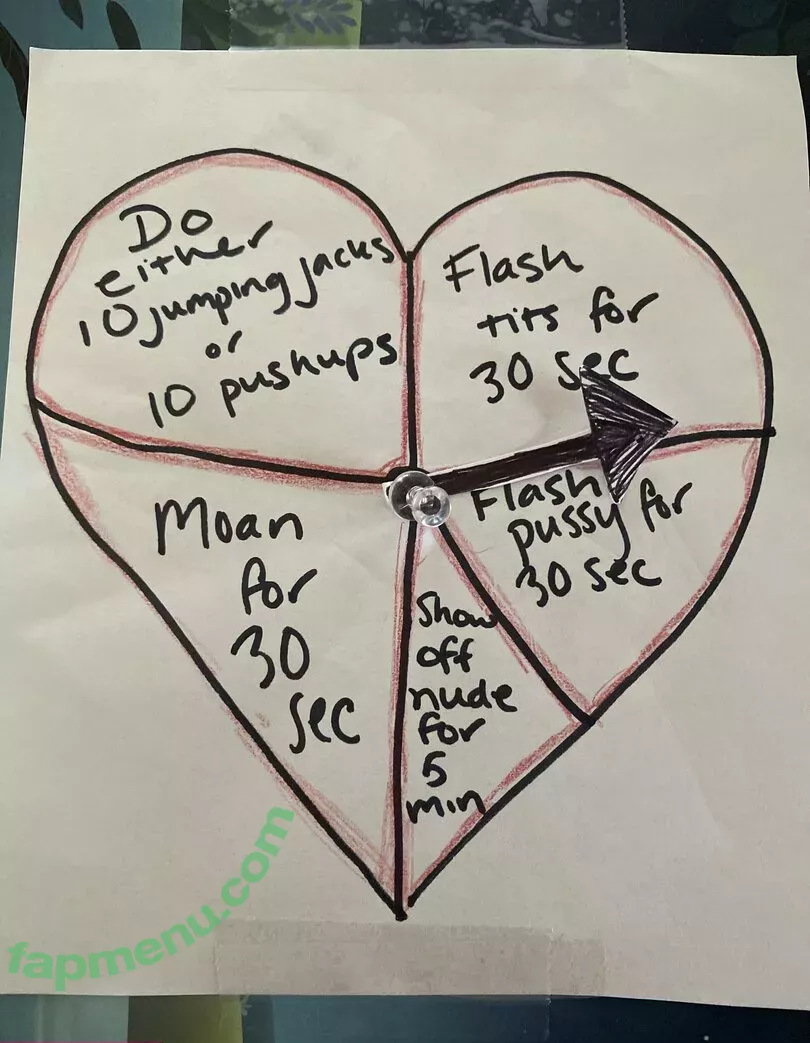 Do
either
10 jumping jacks
or
10 pushups
Flash
tits for
30 sec
Flash
pussy for
30 sec
Show
off
nude
for
5
min
Moan
for
30
sec
fapmenu.com